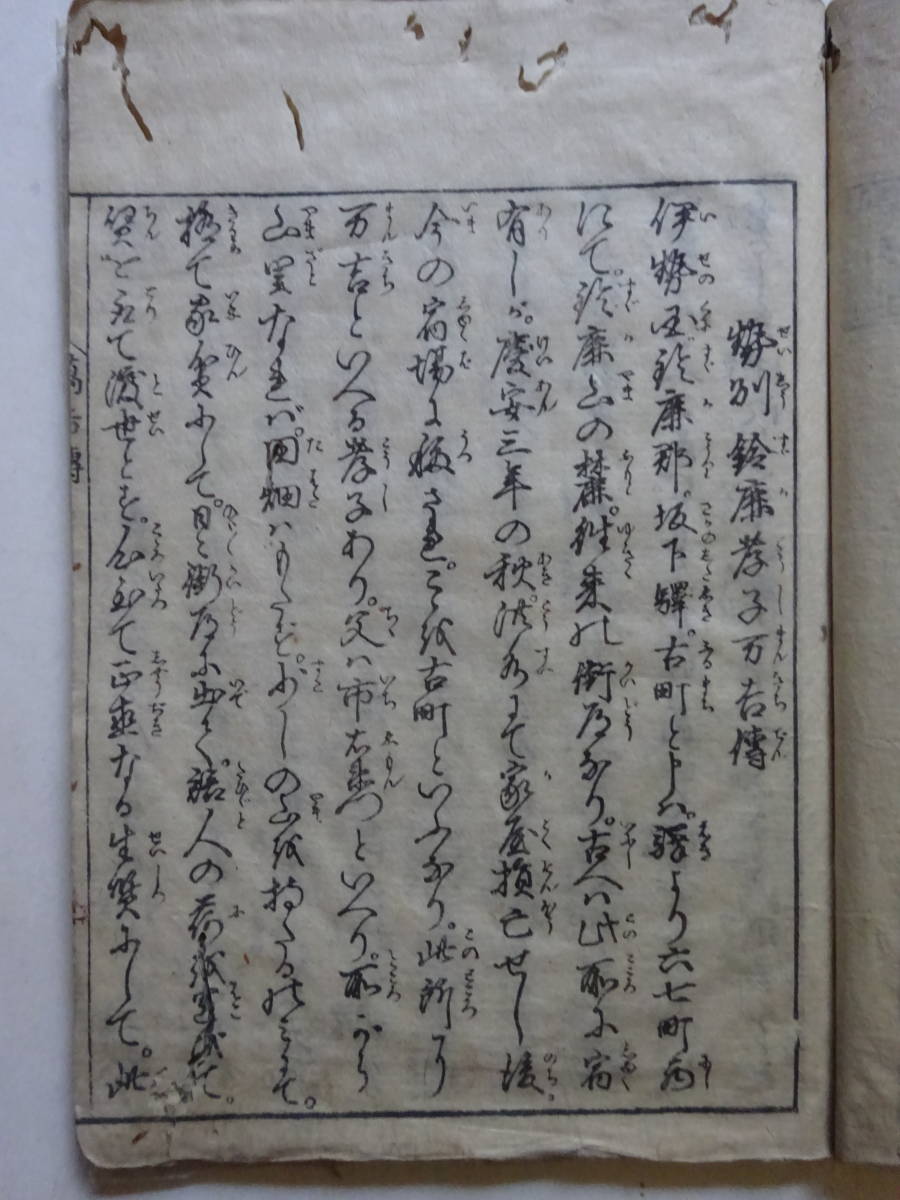 勢州鈴鹿孝子万吉傳
伊勢国鈴鹿郡。坂下驛。古町といふは。驛より六七町西
にて。鈴鹿山の麓。往来の街道なり。古へハ此所に宿
有しが。慶安三年の秋。洪水にて家屋損亡せし後。
今の宿場に移され。こゝを古町といふなり。此所に
万吉といへる孝子あり。父ハ市右衛門といへり。所から
山里なれバ。田畑ハもたず。少しの山を持たるのミにて。
極て家貧にして。日々街道に出て。旅人の荷を運
賃を取て渡世とす。心至て正直なる生質にして。此
萬吉傳